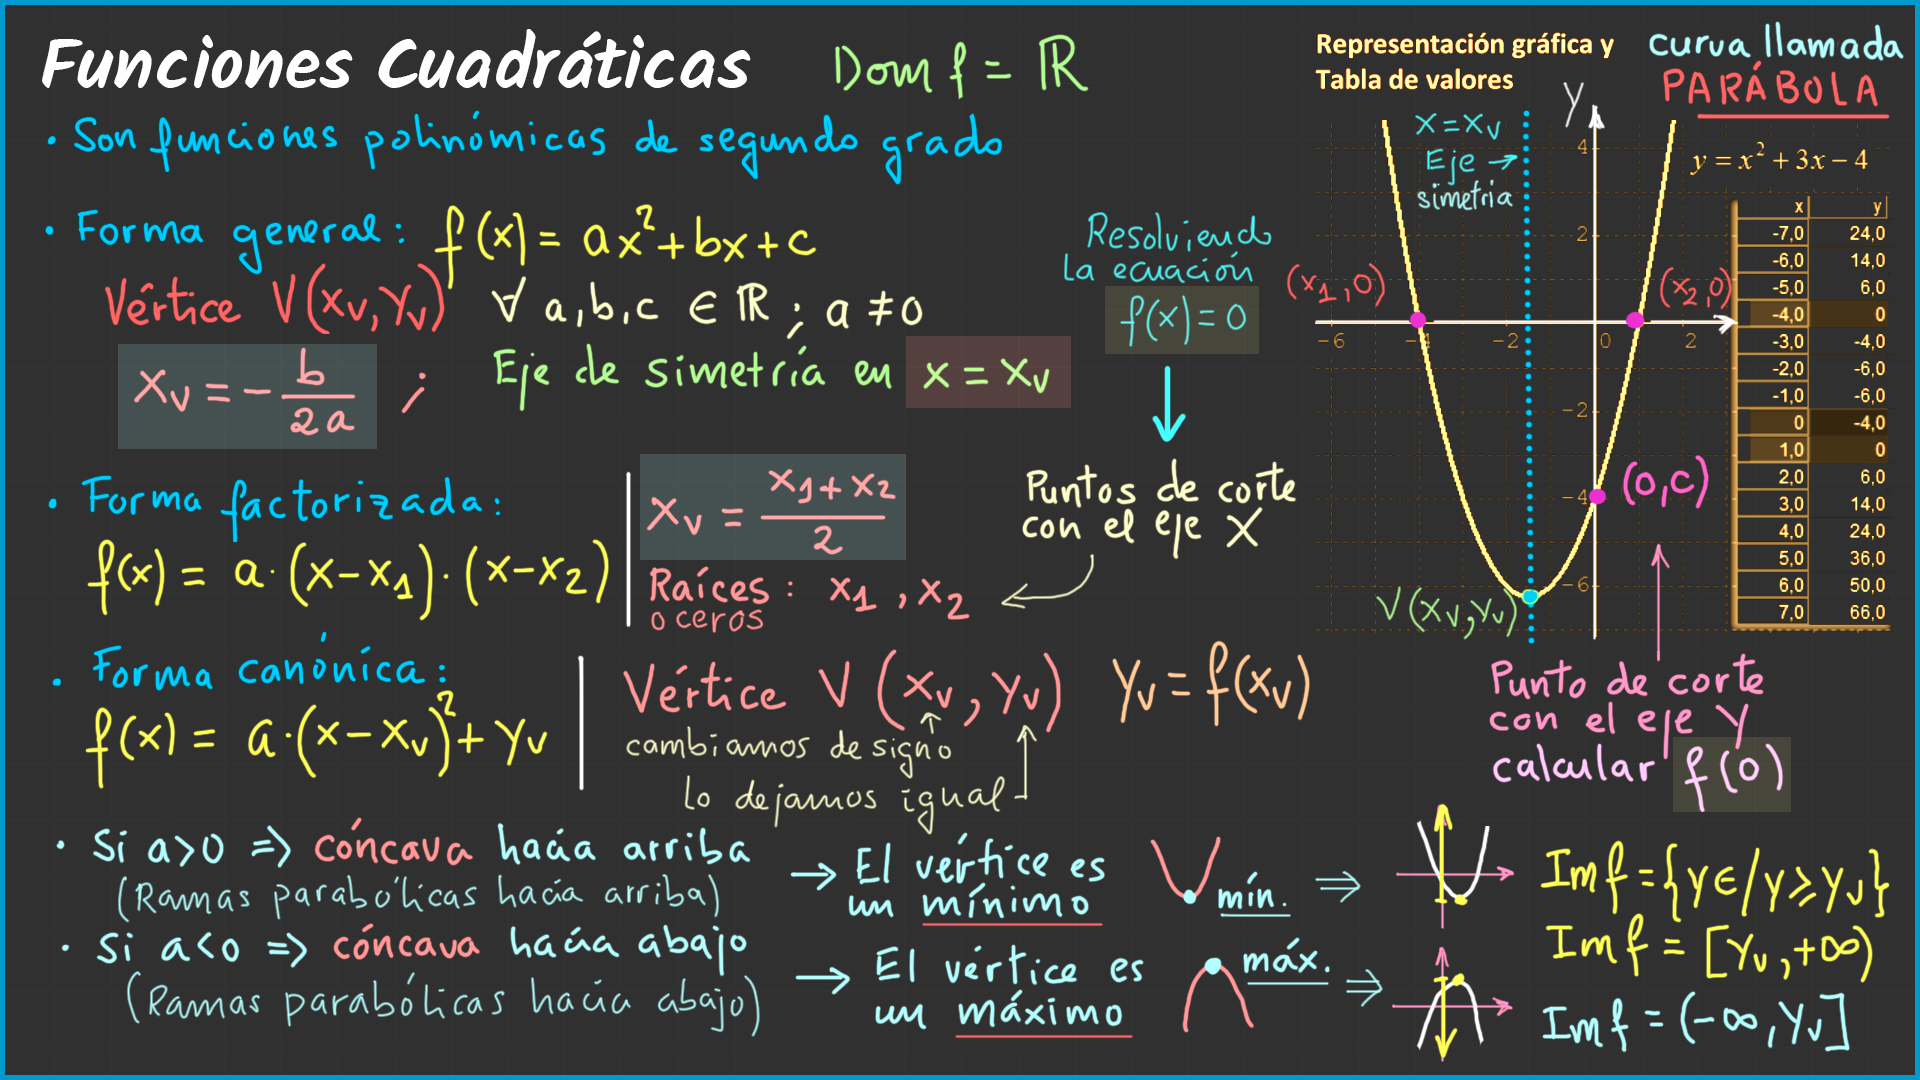 Funciones Cuadráticas
Dom f = ℝ
• Son funciones polinómicas de segundo grado
• Forma general: f(x) = ax²+bx+c
Vértice V(xv, yv)
∀ a,b,c ∈ ℝ ; a ≠ 0
xv = - b/2a ;
Eje de simetría en x = xv
• Forma factorizada:
f(x) = a·(x-x1)·(x-x2)
xv = x1+x2/2
Raíces: x1, x2
o ceros
Resolviendo
la ecuación
f(x) = 0
Puntos de corte
con el eje X
• Forma canónica:
f(x) = a·(x-xv)²+yv
Vértice V (xv, yv)
yv = f(xv)
cambiamos de signo
lo dejamos igual
• Si a>0 => cóncava hacia arriba
(Ramas parabólicas hacia arriba)
→ El vértice es
un mínimo
mín. ⇒
Im f = {y∈/y≥yv}
Im f = [yv, +∞)
• Si a<0 => cóncava hacia abajo
(Ramas parabólicas hacia abajo)
→ El vértice es
un máximo
máx. ⇒
Im f = (-∞, yv]
Representación gráfica y
Tabla de valores
curva llamada
PARÁBOLA
y = x² + 3x − 4
Y
x = xv
Eje →
simetria
(x1, 0)
(x2, 0)
(0, c)
V(xv, yv)
4
2
-6
-4
-2
0
2
-2
-4
-6
x y
-7,0 24,0
-6,0 14,0
-5,0 6,0
-4,0 0
-3,0 -4,0
-2,0 -6,0
-1,0 -6,0
0 -4,0
1,0 0
2,0 6,0
3,0 14,0
4,0 24,0
5,0 36,0
6,0 50,0
7,0 66,0
Punto de corte
con el eje Y
calcular f(0)